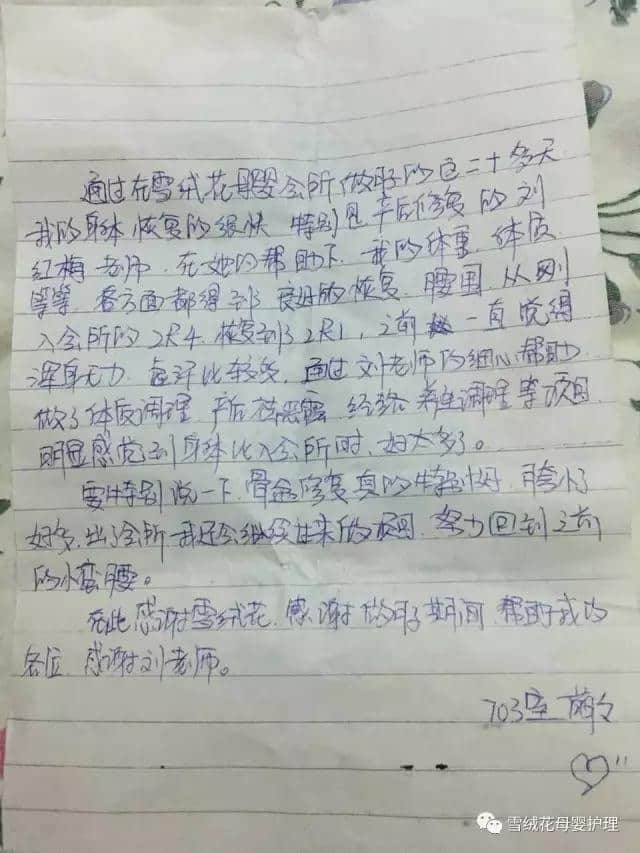 通过在雪绒花母婴会所做月子的这二十多天
我的身体恢复的很快 特别是产后修复的刘
红梅老师．在她的帮助下．我的体重．体质
等等．各方面都得到了良好的恢复．腰围．从刚
入会所的2尺4．恢复到了2尺1，之前 一直觉得
浑身无力． 比较多．通过刘老师的细心帮助．
做了体质调理．产后 恶露 经络 养生调理等项目
明显感觉到身体比入会所时．好太多了。
要特别说一下．骨盆修复真的特别好．胯小了
好多．出了会所．我还会继续往来做项目．努力回到之前
的小蛮腰。
在此感谢雪绒花．感谢做月子期间．帮助我的
各位．感谢刘老师。
703室
雪绒花母婴护理